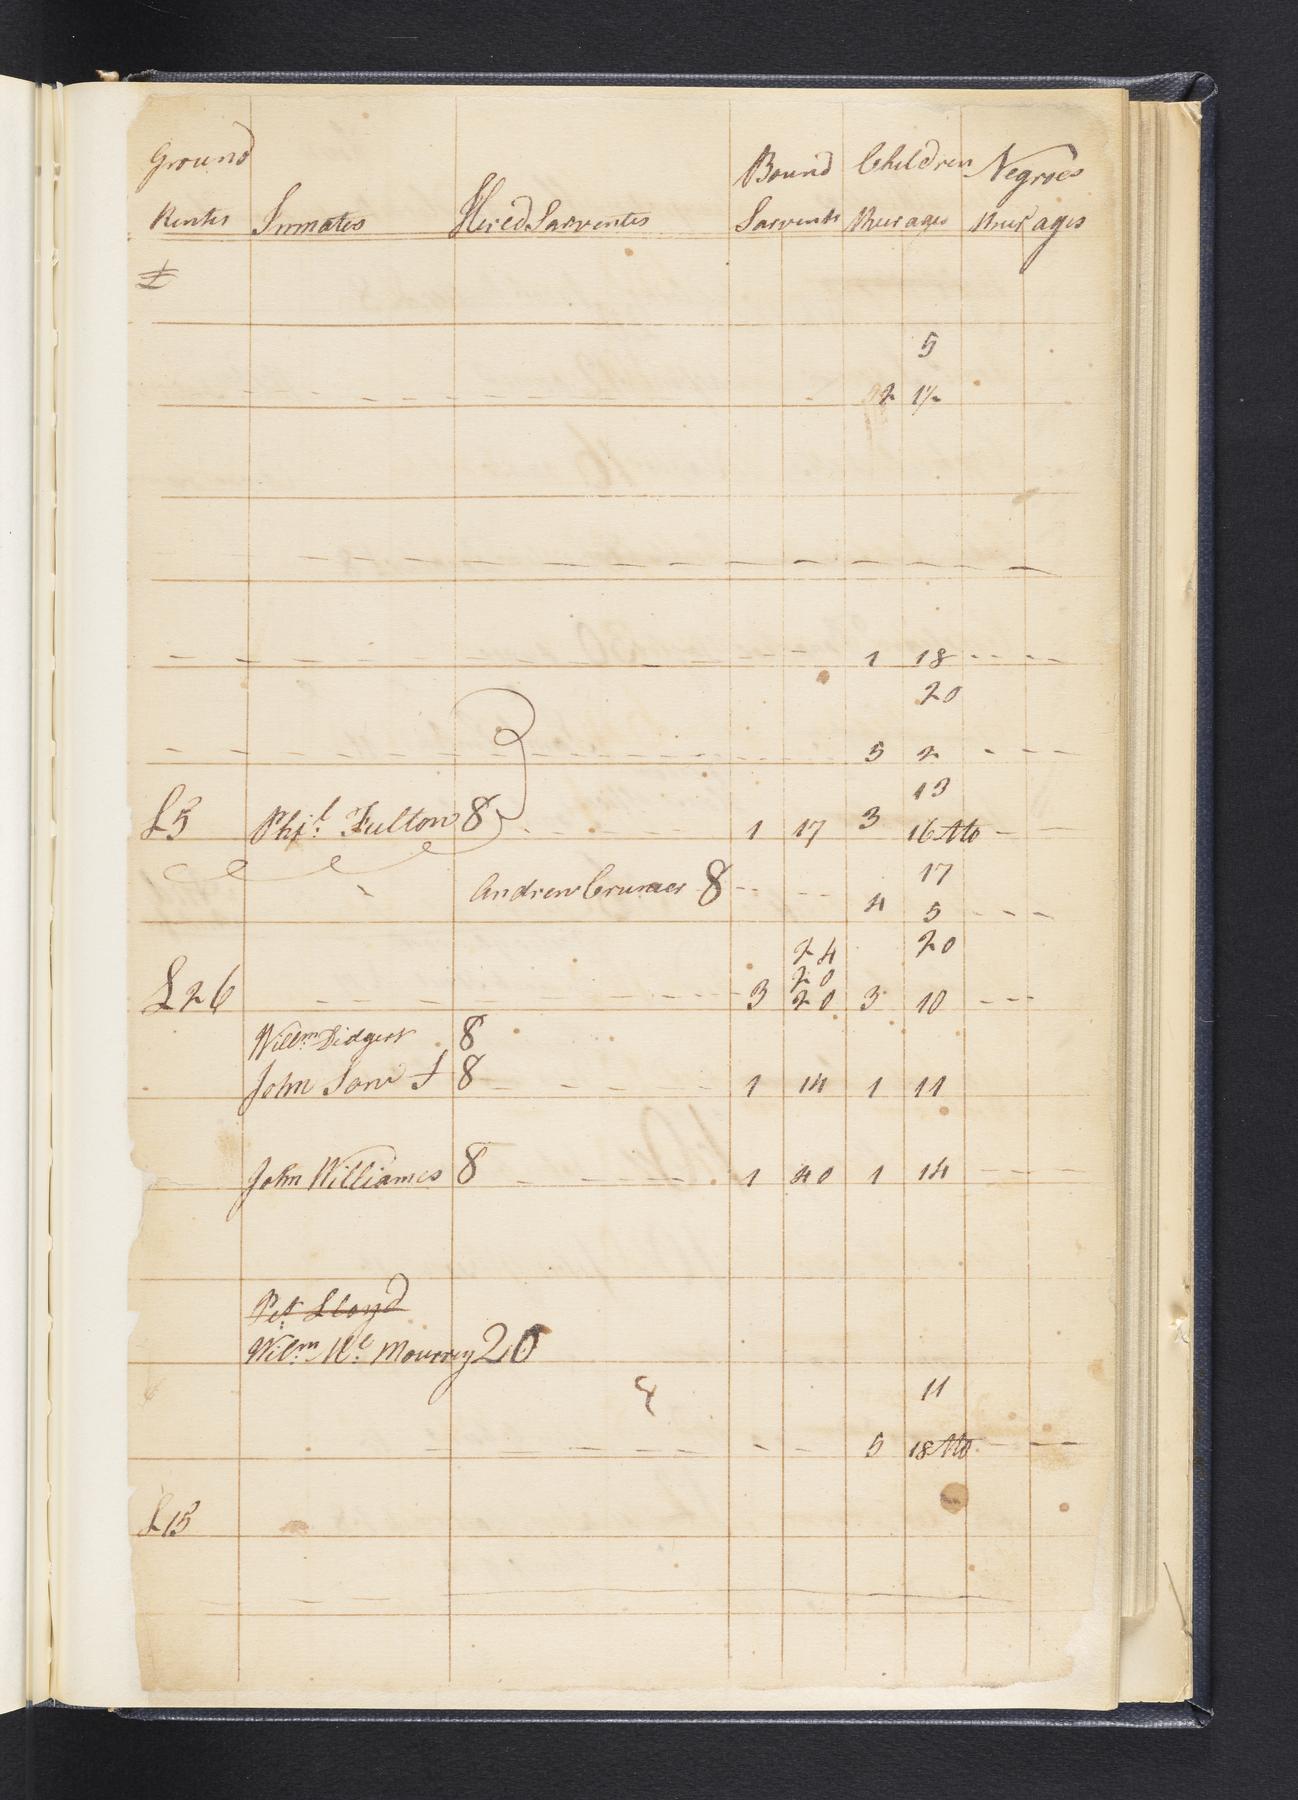 Ground Bound Children Negroes
Rents Inmates Hired Sarventes Sarvents Nur ages Nur ages
£
5
2 1½
1 18
20
5 2
13
£5 Phil. Fulton 8 1 17 3 16 Mo
17
Andrew Crumer 8 4 5
24 20
20
£26 3 20 3 10
Willm Didgert 8
John 8 1 14 1 11
John Williames 8 1 40 1 14
Pet Lloyd
Wilm Mc Mourrey 20
11
5 18 Mo
£15